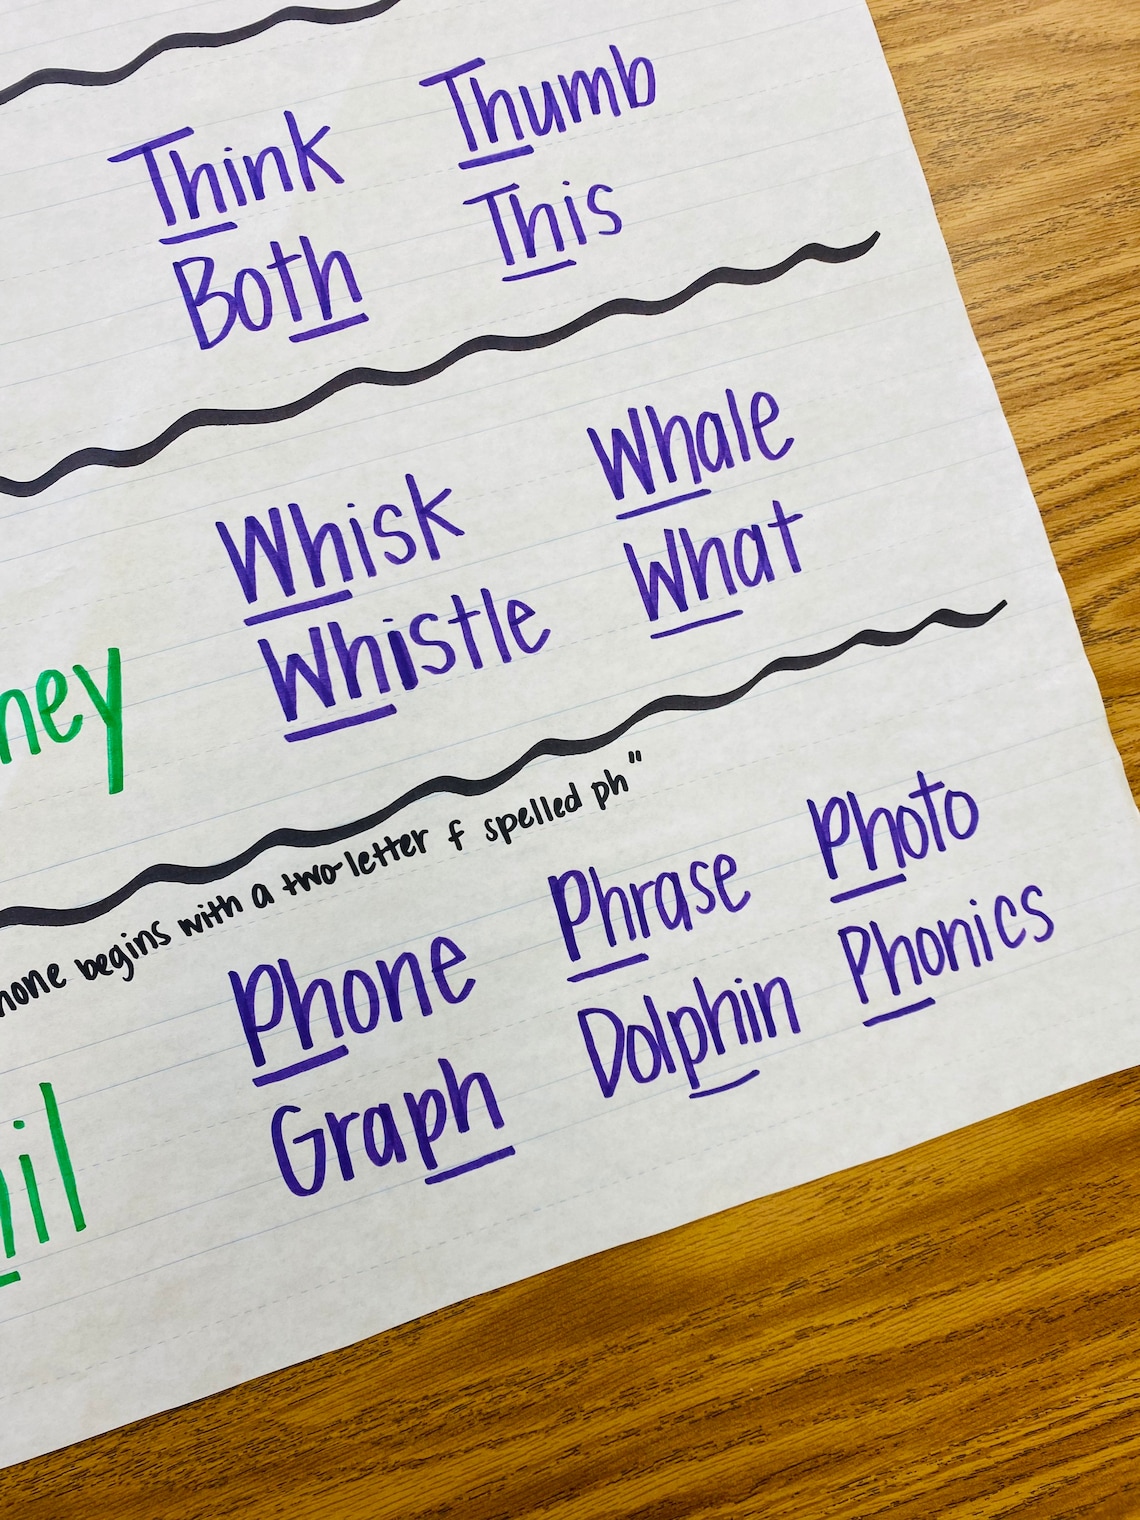 Think Thumb
Both This
Whisk Whale
Whistle What
begins with a two-letter f spelled ph"
Phone Phrase Photo
Graph Dolphin Phonics